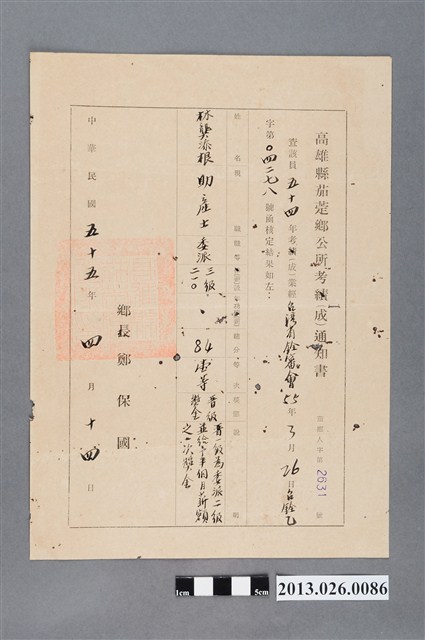 高雄縣茄萣鄉公所考績(成)通知書
茄鄉人字第2631號
查該員五十四年考績(成)業經台灣省銓審會55年3月26日台銓乙
字第〇四二七八號函核定結果如左:
姓名
職
林龔添根 助產士 委派三級二一〇 84 壹等 晉級 晉一級為委派二級
獎金 並給予半個月薪額
之一次獎金
鄉長鄭保國
中華民國五十五年四月十四日
1cm
5cm
2013.026.0086